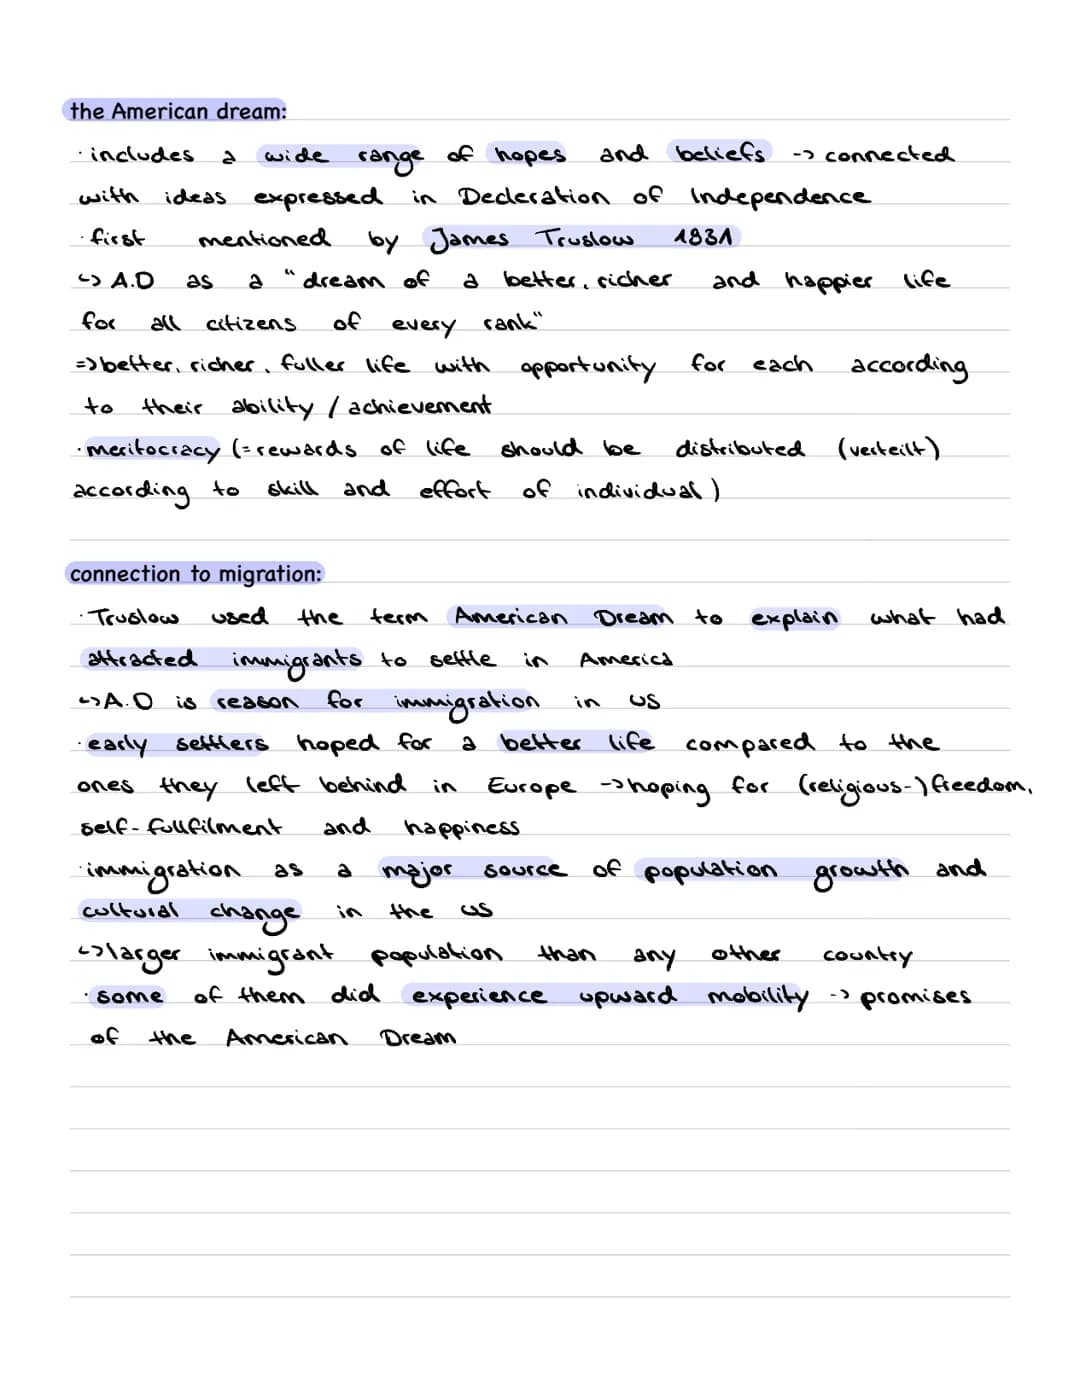 the American dream:
· includes a wide range of hopes and beliefs -> connected
with ideas expressed in Decleration of Independence
· first mentioned by James Truslow 1931
↳ A.D as a "dream of a better, richer and happier life
for all citizens of every rank"
=> better, richer, fuller life with opportunity for each according
to their ability / achievement
· meritocracy (= rewards of life should be distributed (verteilt)
according to skill and effort of individual)
connection to migration:
· Truslow used the term American Dream to explain what had
attracted immigrants to settle in America
↳ A.D is reason for immigration in US
· early settlers hoped for a better life compared to the
ones they left behind in Europe -> hoping for (religious-) freedom,
self-fullfilment and happiness
· immigration as a major source of population growth and
cultural change in the US
↳ larger immigrant population than any other country
· some of them did experience upward mobility -> promises
of the American Dream